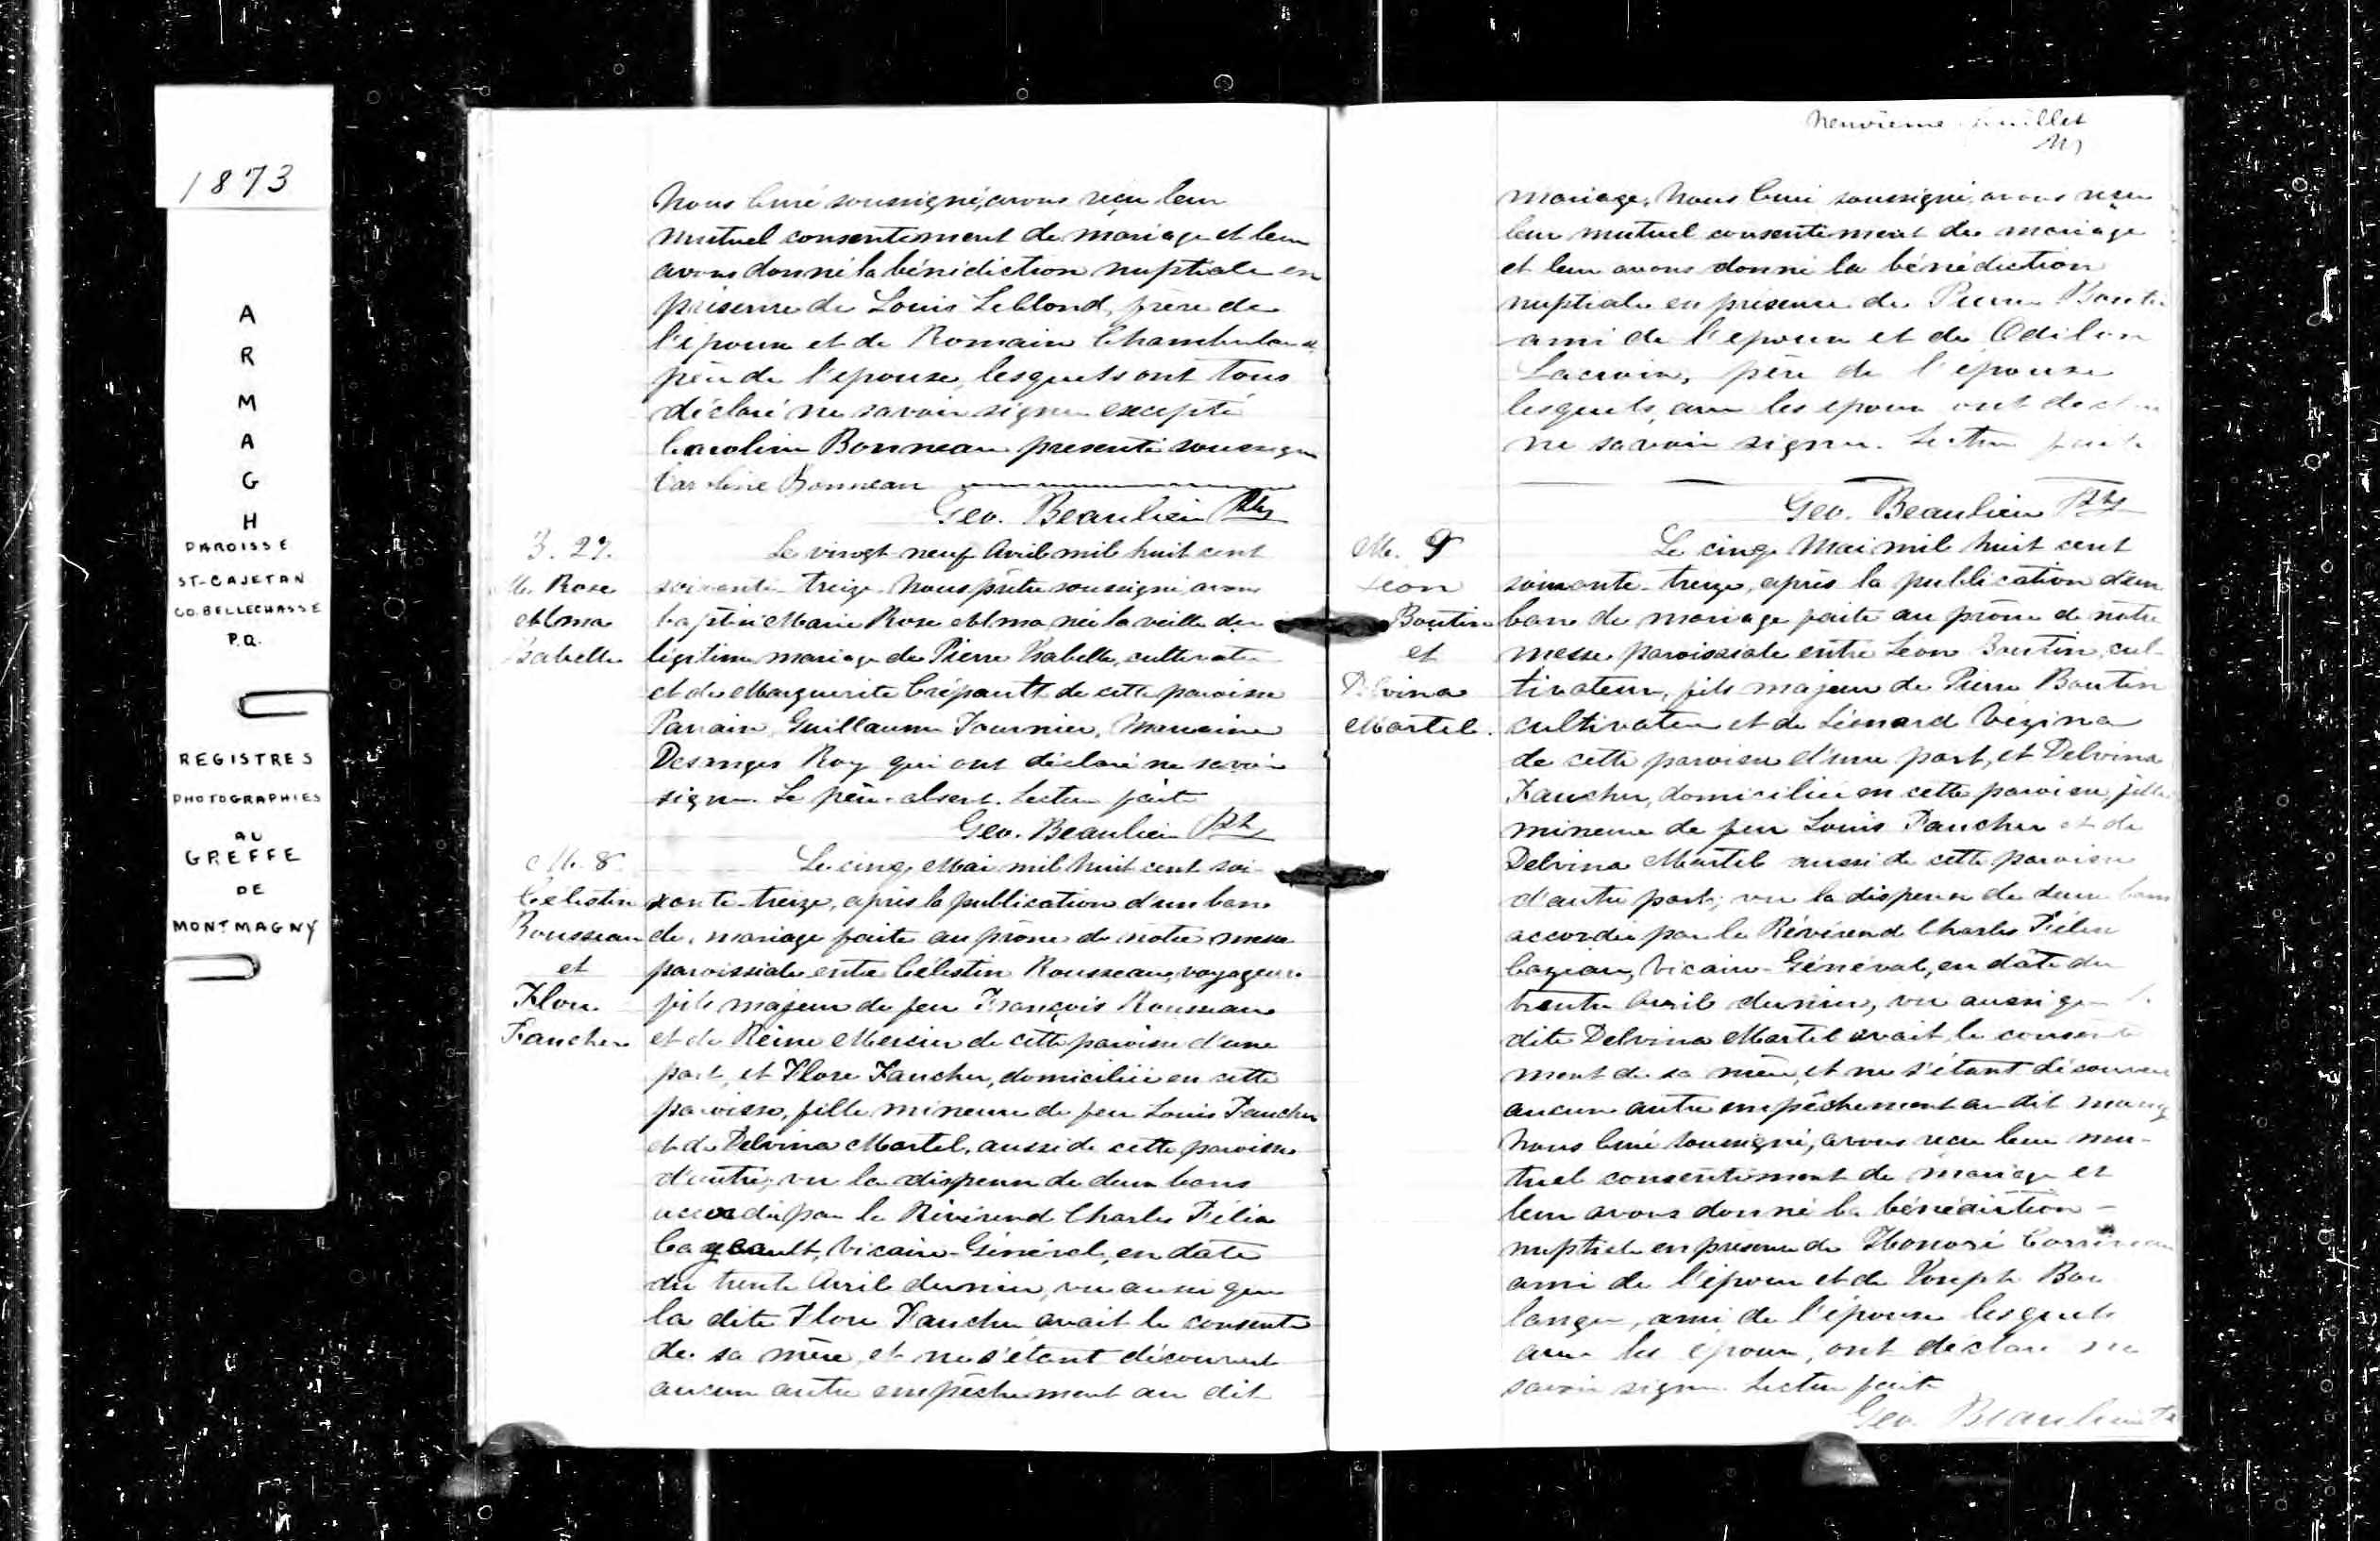 1873
A
R
M
A
G
H
PAROISSE
ST-CAJETAN
CO. BELLECHASSE
P.Q.
REGISTRES
PHOTOGRAPHIES
AU
GREFFE
DE
MONTMAGNY
Nous Curé soussigné, avons reçu leur
mutuel consentement de mariage et leur
avons donné la bénédiction nuptiale en
présence de Louis Leblond, frère de
l'époux et de Romain Chamberland
père de l'epouse, lesquels ont tous
déclaré ne savoir signer excepté
Caroline Bonneau presente soussigné
Caroline Bonneau
Geo. Beaulieu Ptre
B. 27.
M. Rose
Alma
Isabelle
Le vingt-neuf Avril mil huit cent
soixante-treize. Nous prêtre soussigné, avons
baptisé Marie Rose Alma née la veille du
légitime mariage de Pierre Isabelle, cultivateur
et de Marguerite Crépault de cette paroisse
Parrain, Guillaume Fournier, Marraine
Desanges Roy qui ont déclaré ne savoir
signer. Le père absent. Lecture faite
Geo. Beaulieu Ptre
M. 8
Célestin
Rousseau
et
Flore
Faucher
Le cinq Mai mil huit cent soi-
xante-treize, après la publication d'un banc
de mariage faite au prône de notre messe
paroissiale entre Célestin Rousseau, voyageur
fils majeur de feu François Rousseau
et de Reine Mercier de cette paroisse d'une
part, et Flore Faucher, domiciliée en cette
paroisse, fille mineure de feu Louis Faucher
et de Delvina Martel, aussi de cette paroisse
d'autre; vu la dispense de deux bans
accordée par le Révérend Charles Félix
Cazeault, Vicaire-Général, en date
du trente Avril dernier, vu aussi que
la dite Flore Faucher avait le consente
de sa mère, et ne s'étant découvert
aucun autre empêchement au dit
Neuvième feuillet
mariage, Nous Curé soussigné, avons reçu
leur mutuel consentement de mariage
et leur avons donné la bénédiction
nuptiale en présence de Pierre Boutin
ami de l'epoux et de Odilon
Lacroix, père de l'épouse
lesquels, avec les epoux ont declaré
ne savoir signer. Lecture faite
Geo. Beaulieu Ptre
M. 9
Leon
Boutin
et
Delvina
Martel.
Le cinq Mai mil huit cent
soixante-treize, après la publication d'un
banc de mariage faite au prône de notre
messe paroissiale entre Leon Boutin, cul-
tivateur, fils majeur de Pierre Boutin
cultivateur et de Léonard Vézina
de cette paroisse d'une part, et Delvina
Faucher, domiciliée en cette paroisse, fille
mineure de feu Louis Faucher et de
Delvina Martel aussi de cette paroisse
d'autre part; vu la dispense de deux bans
accordée par le Révérend Charles Félix
Cazeau, Vicaire-Général, en date du
trente Avril dernier, vu aussi que la
dite Delvina Martel avait le consente
ment de sa mère, et ne s'étant découvert
aucun autre empêchement au dit mariage
Nous Curé soussigné, avons reçu leur mu-
tuel consentement de mariage et
leur avons donné la bénédiction -
nuptiale en présence de Honoré
ami de l'époux et de Joseph Bou
langer, ami de l'épouse lesquels
avec les époux, ont déclaré ne
savoir signer. Lecture faite
Geo. Beaulieu Ptre